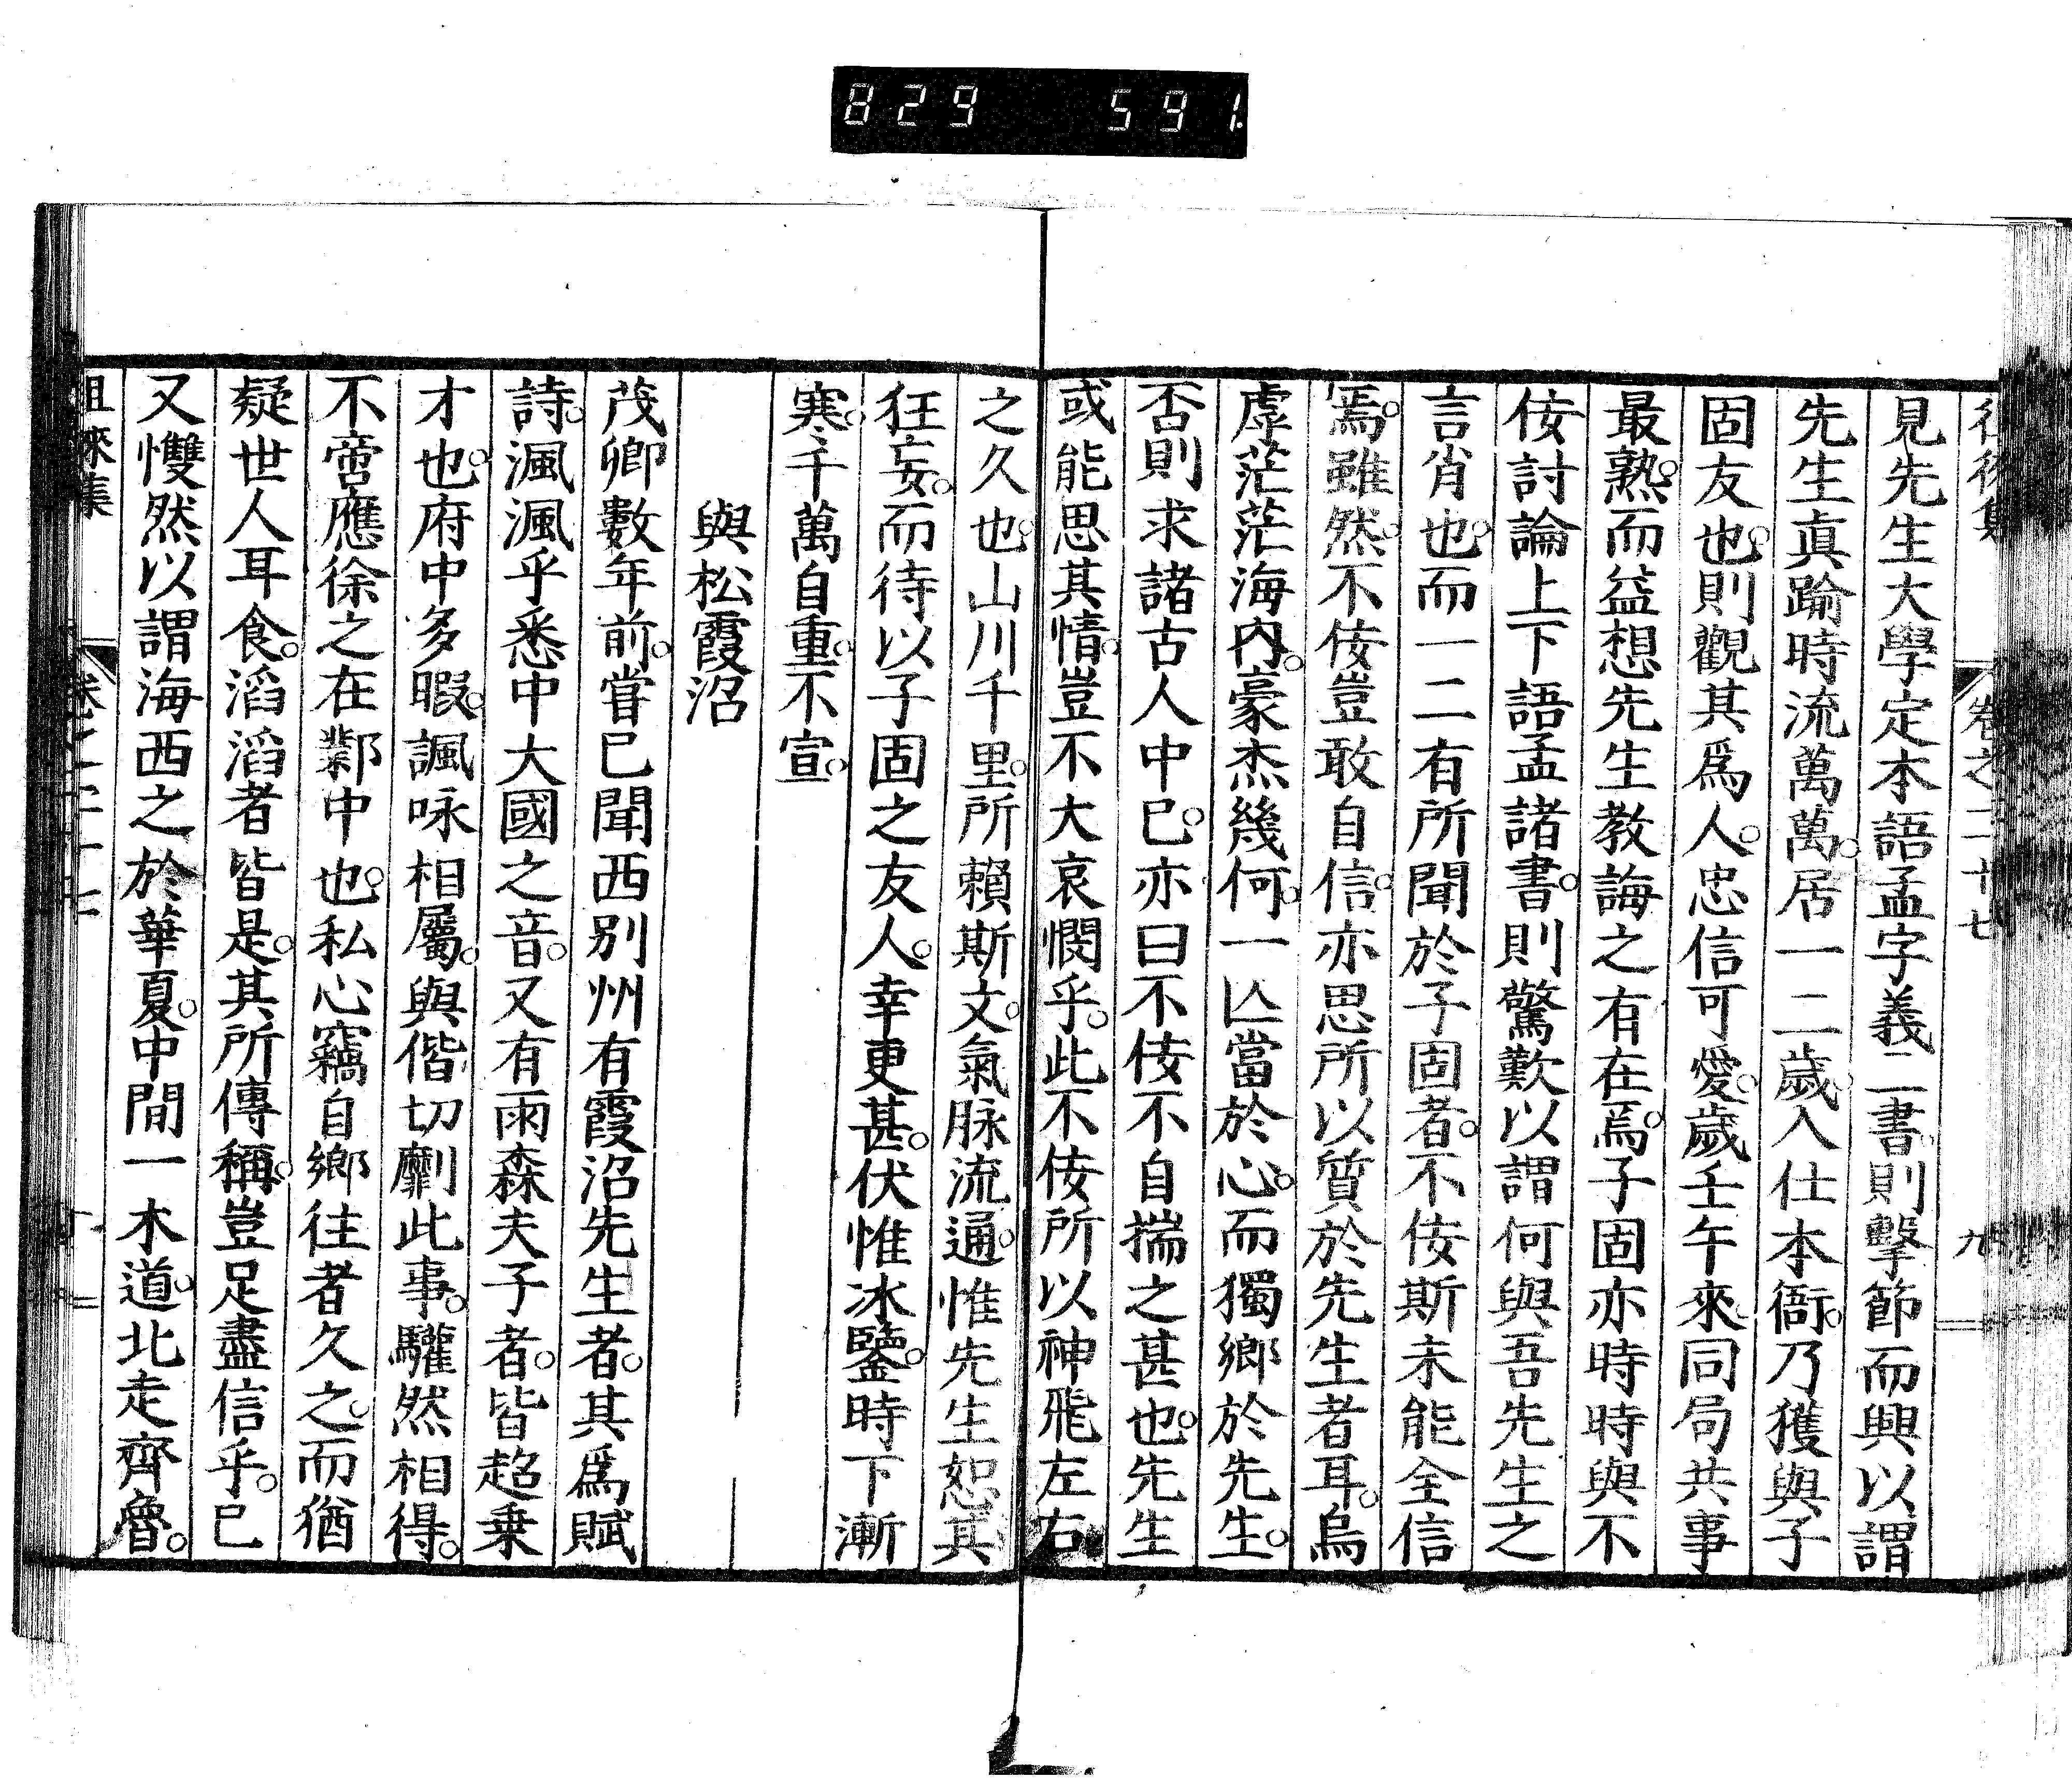 829 591
見先生大學定本語孟字義二書則擊節而興以謂
先生眞踰時流萬萬居一二歲入仕本衙乃獲與子
固友也則觀其爲人忠信可愛歲壬午來同局共事
最熟而益想先生教誨之有在焉子固亦時時與不
佞討論上下語孟諸書則驚歎以謂何與吾先生之
言肖也而一二有所聞於子固者不佞斯未能全信
焉雖然不佞豈敢自信亦思所以質於先生者耳烏
虖茫茫海內豪杰幾何一亾當於心而獨鄉於先生
否則求諸古人中已亦曰不佞不自揣之甚也先生
或能思其情豈不大哀憫乎此不佞所以神飛左右
之久也山川千里所賴斯文氣脉流通惟先生恕其
狂妄而待以子固之友人幸更甚伏惟冰鑒時下漸
寒千萬自重不宣
與松霞沼
茂卿數年前嘗已聞西別州有霞沼先生者其爲賦
詩渢渢乎悉中大國之音又有雨森夫子者皆超乗
才也府中多暇諷咏相屬與偕切劘此事驩然相得
不啻應徐之在鄴中也私心竊自鄉往者久之而猶
疑世人耳食滔滔者皆是其所傳稱豈足盡信乎已
又戄然以謂海西之於華夏中間一木道北走齊魯
徂徠集 卷之二十七